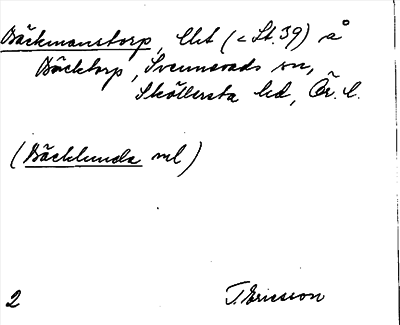 Bäckmanstorp, lht (= St. 39) å
Bäcktorp, Svennevads sn,
Sköllersta hd, Ör. l.
(Bäcklunda ml)
2 T. Ericsson